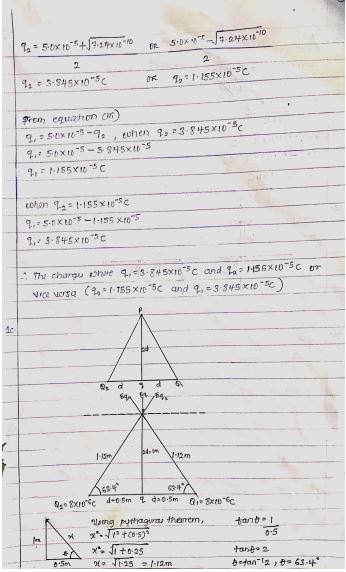 q₂ = 5.0×10⁻⁵ + √7.24×10⁻¹⁰ OR 5.0×10⁻⁵ - √7.24×10⁻¹⁰
2 2
q₂ = 3.845×10⁻⁵C OR q₂ = 1.155×10⁻⁵C
From equation
q₁ = 5.0×10⁻⁵ - q₂, when q₂ = 3.845×10⁻⁵C
q₁ = 5.0×10⁻⁵ - 3.845×10⁻⁵
q₁ = 1.155×10⁻⁵C
when q₂ = 1.155×10⁻⁵C
q₁ = 5.0×10⁻⁵ - 1.155×10⁻⁵
q₁ = 3.845×10⁻⁵C
∴ The charges where q₁ = 3.845×10⁻⁵C and q₂ = 1.155×10⁻⁵C or
vice versa (q₂ = 1.155×10⁻⁵C and q₁ = 3.845×10⁻⁵C)
1c.
P
2d
Q₂ d q d Q₁
Eq₁ Eq Eq₂
P
1.12m 2d=1m 1.12m
63.4° 63.4°
Q₂ = 8×10⁻⁶C d=0.5m q d=0.5m Q₁ = 8×10⁻⁶C
Using pythagoras theorem, tanθ = 1
0.5
1m x x² = √1² + (0.5)²
θ x² = √1 + 0.25 tanθ = 2
0.5m x = √1.25 = 1.12m θ = tan⁻¹2, θ = 63.4°